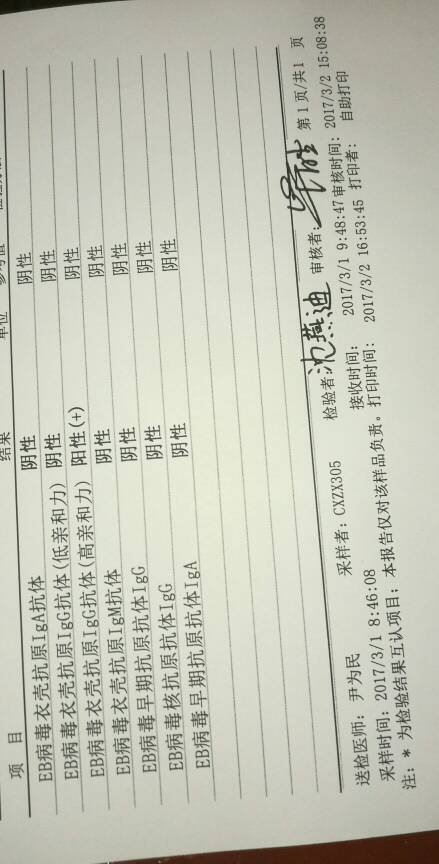 项 目 结果 单位 参考值
EB病毒衣壳抗原IgA抗体 阴性 阴性
EB病毒衣壳抗原IgG抗体(低亲和力) 阴性 阴性
EB病毒衣壳抗原IgG抗体(高亲和力) 阳性(+) 阴性
EB病毒衣壳抗原IgM抗体 阴性 阴性
EB病毒早期抗原抗体IgG 阴性 阴性
EB病毒核抗原抗体IgG 阴性 阴性
EB病毒早期抗原抗体IgA 阴性 阴性
送检医师: 尹为民 采样者: CXZX305 检验者: 沈燕迪 审核者: 第1页/共1 页
采样时间: 2017/3/1 8:46:08 接收时间: 2017/3/1 9:48:47 审核时间: 2017/3/2 15:08:38
注: * 为检验结果互认项目; 本报告仅对该样品负责。 打印时间: 2017/3/2 16:53:45 打印者: 自助打印